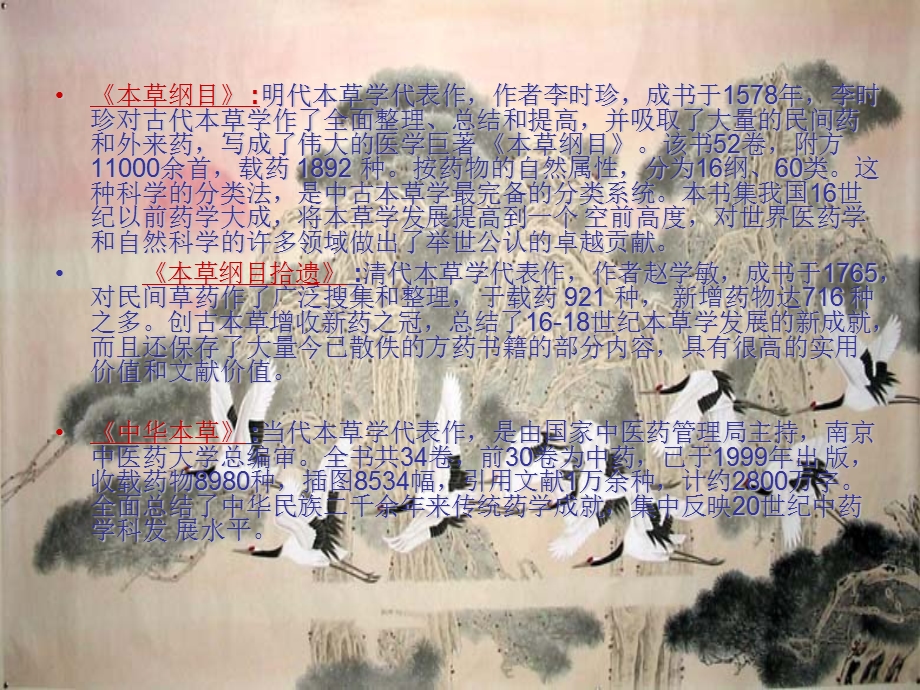 • 《本草纲目》:明代本草学代表作，作者李时珍，成书于1578年，李时
珍对古代本草学作了全面整理、总结和提高，并吸取了大量的民间药
和外来药，写成了伟大的医学巨著 《本草纲目》。该书52卷，附方
11000余首，载药 1892 种。按药物的自然属性，分为16纲、60类。这
种科学的分类法，是中古本草学最完备的分类系统。本书集我国16世
纪以前药学大成，将本草学发展提高到一个 空前高度，对世界医药学
和自然科学的许多领域做出了举世公认的卓越贡献。
• 《本草纲目拾遗》:清代本草学代表作，作者赵学敏，成书于1765，
对民间草药作了广泛搜集和整理，于载药 921 种， 新增药物达716 种
之多。创古本草增收新药之冠，总结了16-18世纪本草学发展的新成就，
而且还保存了大量今已散佚的方药书籍的部分内容，具有很高的实用
价值和文献价值。
• 《中华本草》:当代本草学代表作，是由国家中医药管理局主持，南京
中医药大学总编审。全书共34卷，前30卷为中药，已于1999年出 版，
收载药物8980种，插图8534幅，引用文献1万余种，计约2800万字。
全面总结了中华民族二千余年来传统药学成就，集中反映20世纪中药
学科发 展水平。